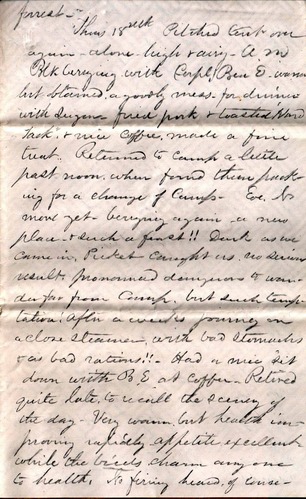 forrest -
Thurs 18th Pitched tent over
again - alone - high & airy - A M
Blk berrying with Corpl, Ben E. warm
but obtained a goodly mess - for dinner
with Sugar fried pork & toasted Hard
Tack & nice coffee. made a fine
treat. Returned to camp a little
past noon. when found them pack-
ing for a change of Camp - Eve. No
move yet - berrying again - a new
place & such a feast!! Dark as we
came in, Picket caught us, no serious
result, pronounced dangerous to wan-
der far from Camp, but such temp-
tation! after a weeks journey on
a close steamer, with bad stomachs
& as bad rations!! - Had a nice sit
down with B. E at coffee - Retired
quite late, to recall the scenery of
the day - Very warm, but health im-
proving rapidly - appetite excellent
while the birds charm any one
to health. No firing heard, of conse-